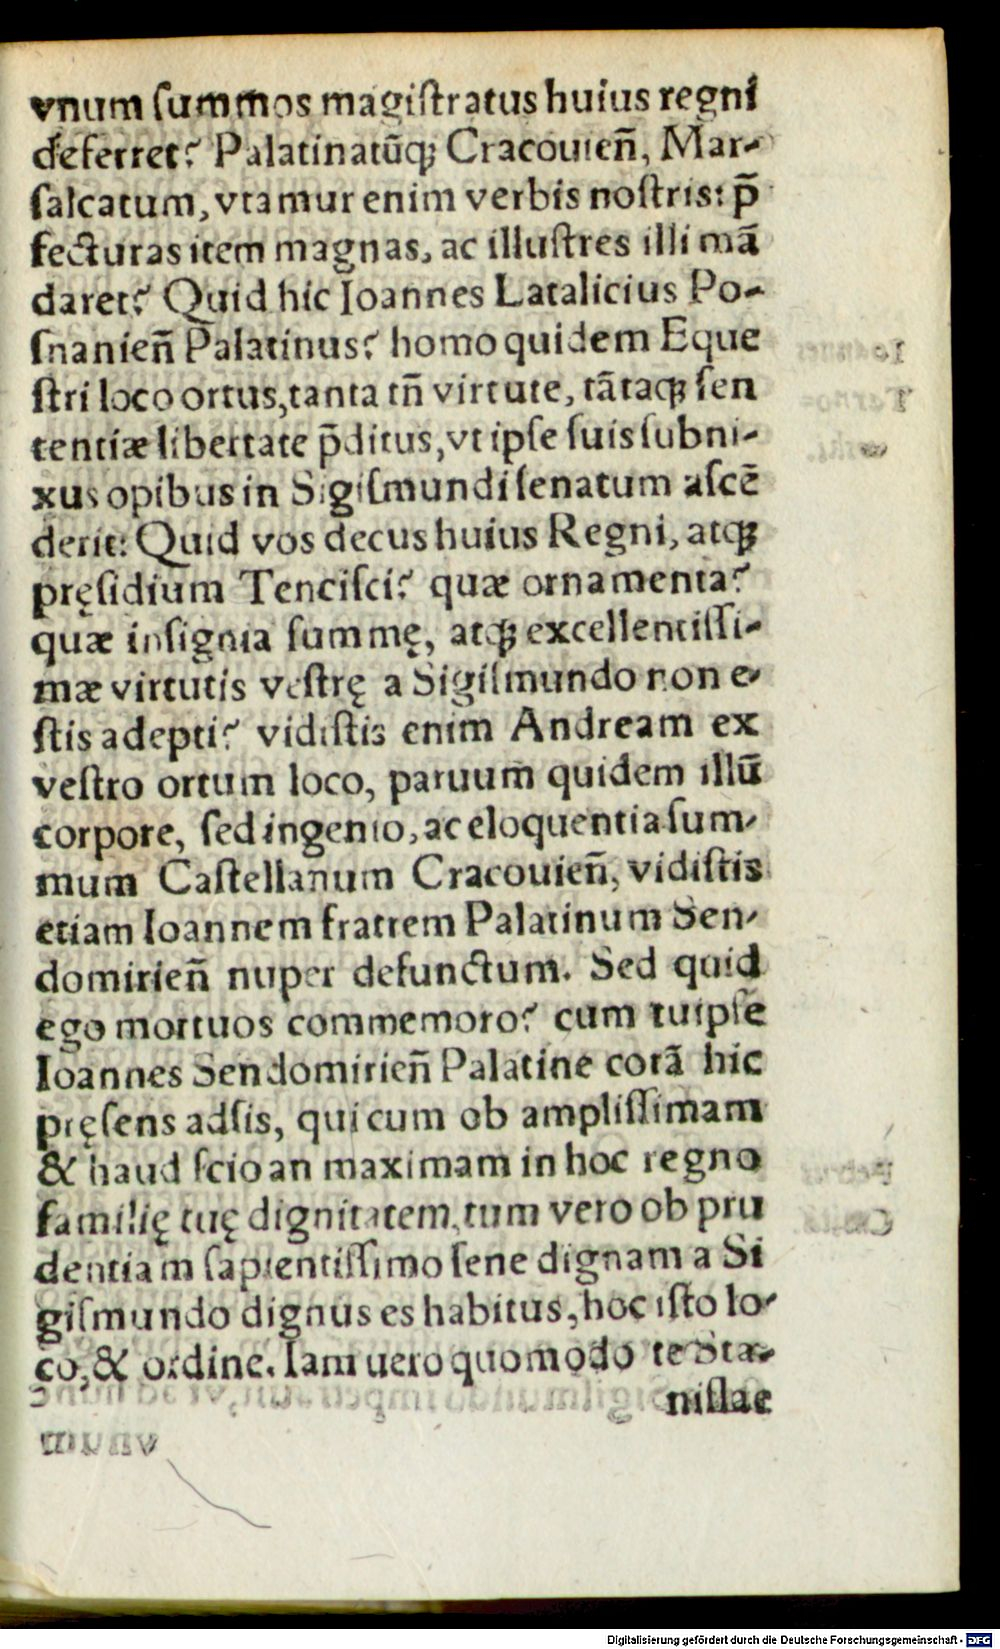 vnum ſummos magiſtratus huius regni
deferret? Palatinatũq; Cracouień, Mar-
ſalcatum, vtamur enim verbis noſtris: p̄
fecturas item magnas, ac illuſtres illi mā
daret? Quid hic Ioannes Latalicius Po-
ſnanień Palatinus? homo quidem Eque
ſtri loco ortus, tanta tñ virtute, tātaq; ſen
tentiæ libertate p̄ditus, vt ipſe ſuis ſubni-
xus opibus in Sigiſmundi ſenatum aſcē
derit: Quid vos decus huius Regni, atq;
pręſidium Tenciſci? quæ ornamenta?
quæ inſignia ſummę, atq; excellentiſſi-
mæ virtutis veſtrę a Sigiſmundo non e-
ſtis adepti? vidiſtis enim Andream ex
veſtro ortum loco, paruum quidem illū
corpore, ſed ingenio, ac eloquentia ſum-
mum Caſtellanum Cracouień, vidiſtis
etiam Ioannem fratrem Palatinum Sen-
domirień nuper defunctum. Sed quid
ego mortuos commemoro? cum tuipſe
Ioannes Sendomirień Palatine corā hic
pręſens adſis, qui cum ob ampliſſimam
& haud ſcio an maximam in hoc regno
familię tuę dignitatem, tum vero ob pru
dentiam ſapientiſſimo ſene dignam a Si
giſmundo dignus es habitus, hoc iſto lo-
co, & ordine. Iam uero quomodo te Sta-
niſlae
Digitalisierung gefördert durch die Deutsche Forschungsgemeinschaft - DFG